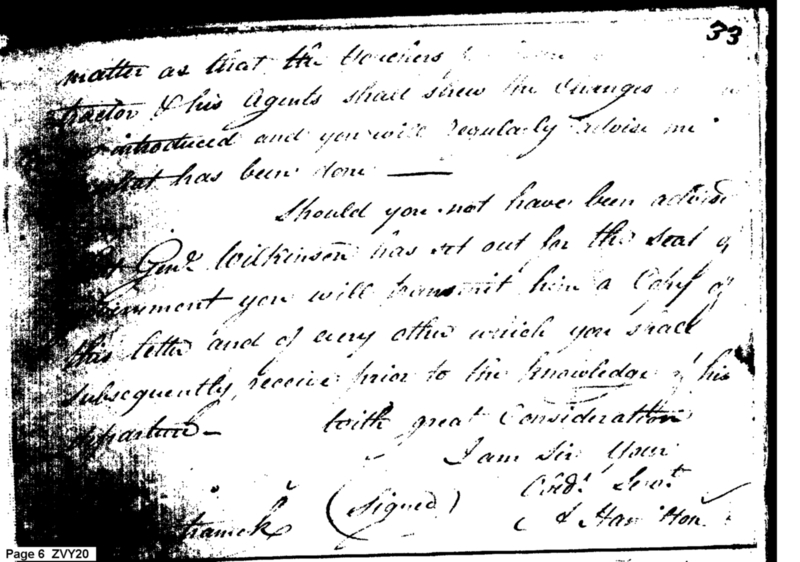 33
matter as that the vouchers
tractor & his Agents shall shew the changes
introduced and you will regularly advise me
what has been done —
Should you not have been advised
Genl. Wilkinson has set out for the seat of
you will transmit him a Copy of
this letter and of every other which you shall
subsequently receive prior to the knowledge of his
departure — With great Consideration
I am Sir Your
Obedt. Servt.
(signed) A Hamilton
Page 6 ZVY20